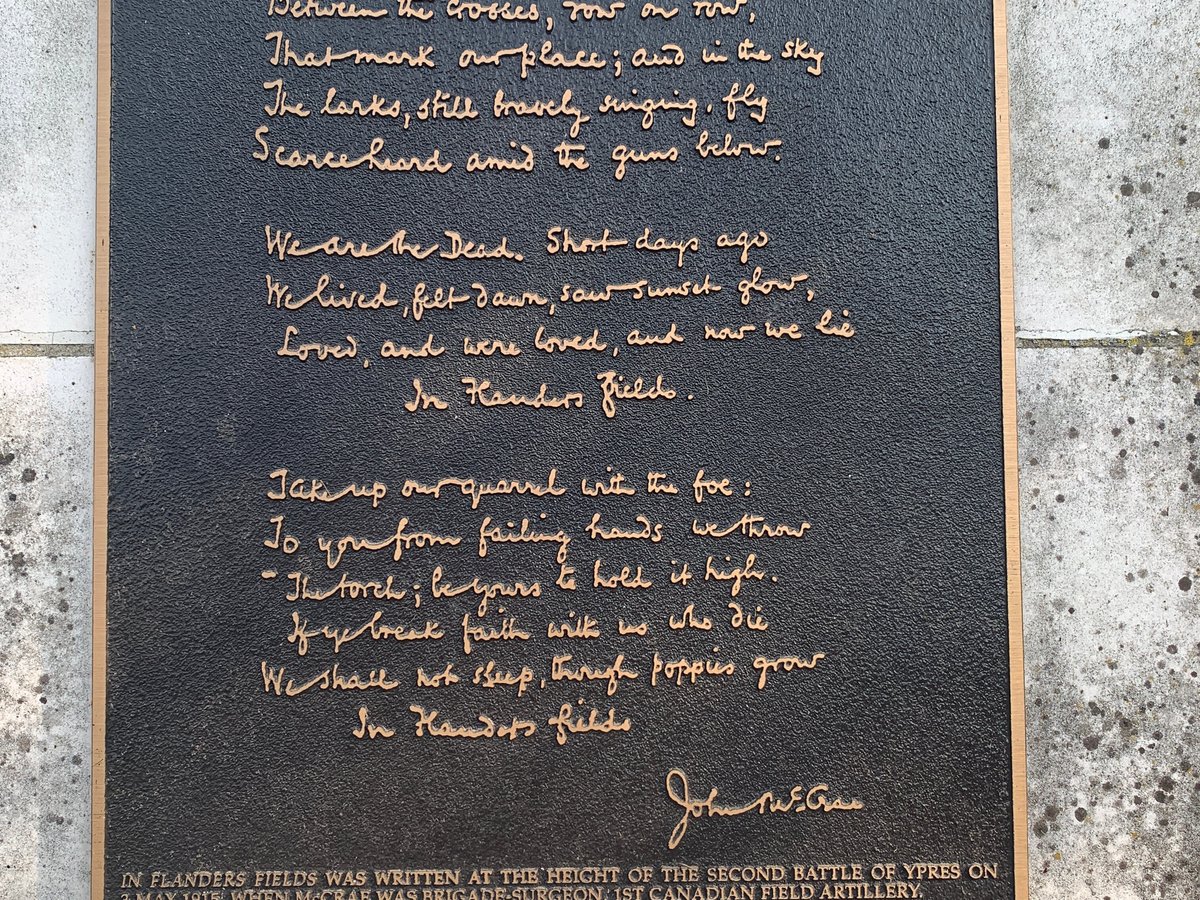 Between the crosses, row on row,
That mark our place; and in the sky
The larks, still bravely singing, fly
Scarce heard amid the guns below.
We are the Dead. Short days ago
We lived, felt dawn, saw sunset glow,
Loved, and were loved, and now we lie
In Flanders fields.
Take up our quarrel with the foe:
To you from failing hands we throw
The torch; be yours to hold it high.
If ye break faith with us who die
We shall not sleep, though poppies grow
In Flanders fields
John McCrae
IN FLANDERS FIELDS WAS WRITTEN AT THE HEIGHT OF THE SECOND BATTLE OF YPRES ON
3 MAY 1915, WHEN McCRAE WAS BRIGADE-SURGEON, 1ST CANADIAN FIELD ARTILLERY.